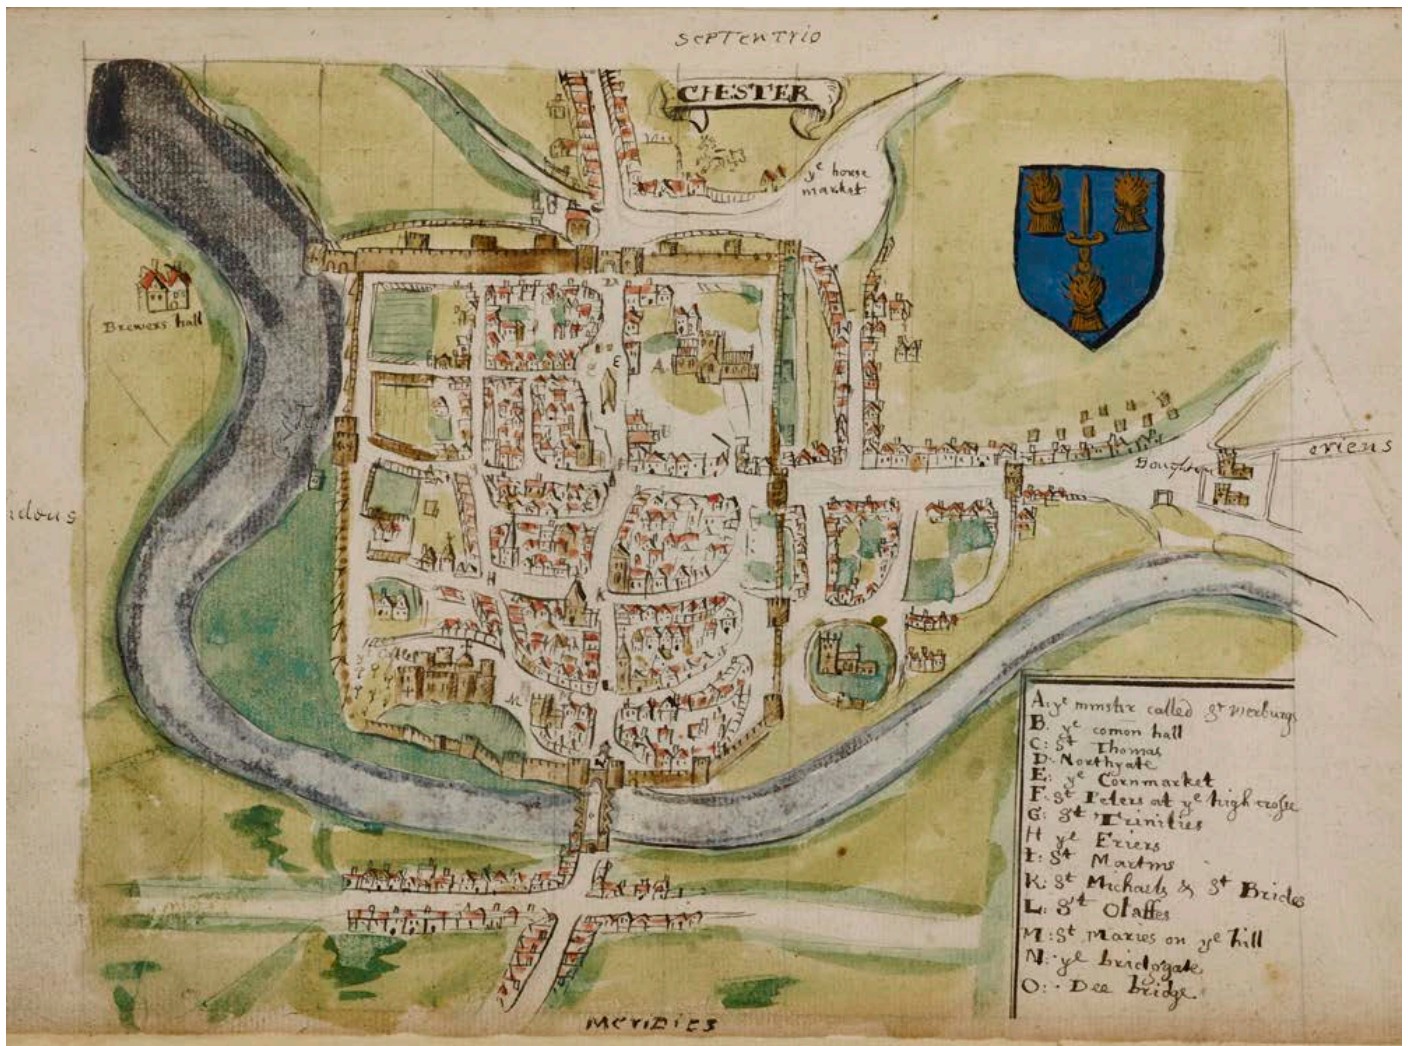 SEPTENTRIO
CHESTER
yᵉ horse
market
Brewers hall
E
A
oriens
H
K
M
N
A: yᵉ minster called Sᵗ Werburgs
B: yᵉ comon hall
C: Sᵗ Thomas
D: Northgate
E: yᵉ Cornmarket
F: Sᵗ Peters at yᵉ high crosse
G: Sᵗ Trinities
H yᵉ Friers
I: Sᵗ Martins
K: Sᵗ Michaels & Sᵗ Brides
L: Sᵗ Olaffes
M: Sᵗ Maries on yᵉ hill
N: yᵉ bridggate
O: Dee bridge
MERIDIES